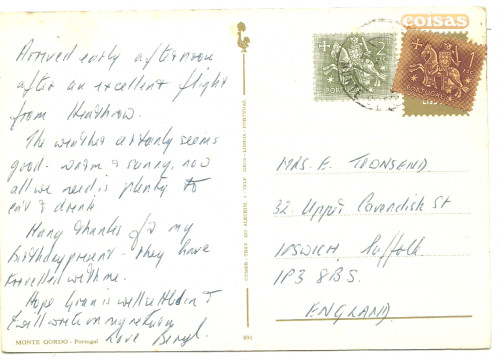 Arrived early afternoon
after an excellent flight
from Heathrow.
The weather certainly seems
good - warm & sunny, now
all we need is plenty to
eat & drink
Many thanks for my
birthday present - they have
travelled with me.
Hope Gran is well settled in &
I will write on my return
Love Beryl.
MONTE GORDO - Portugal
coisas
2
PORTUGAL
1
MRS. E. TOWNSEND
32. Upper Cavendish St
IPSWICH Suffolk.
IP3 8BS.
ENGLAND